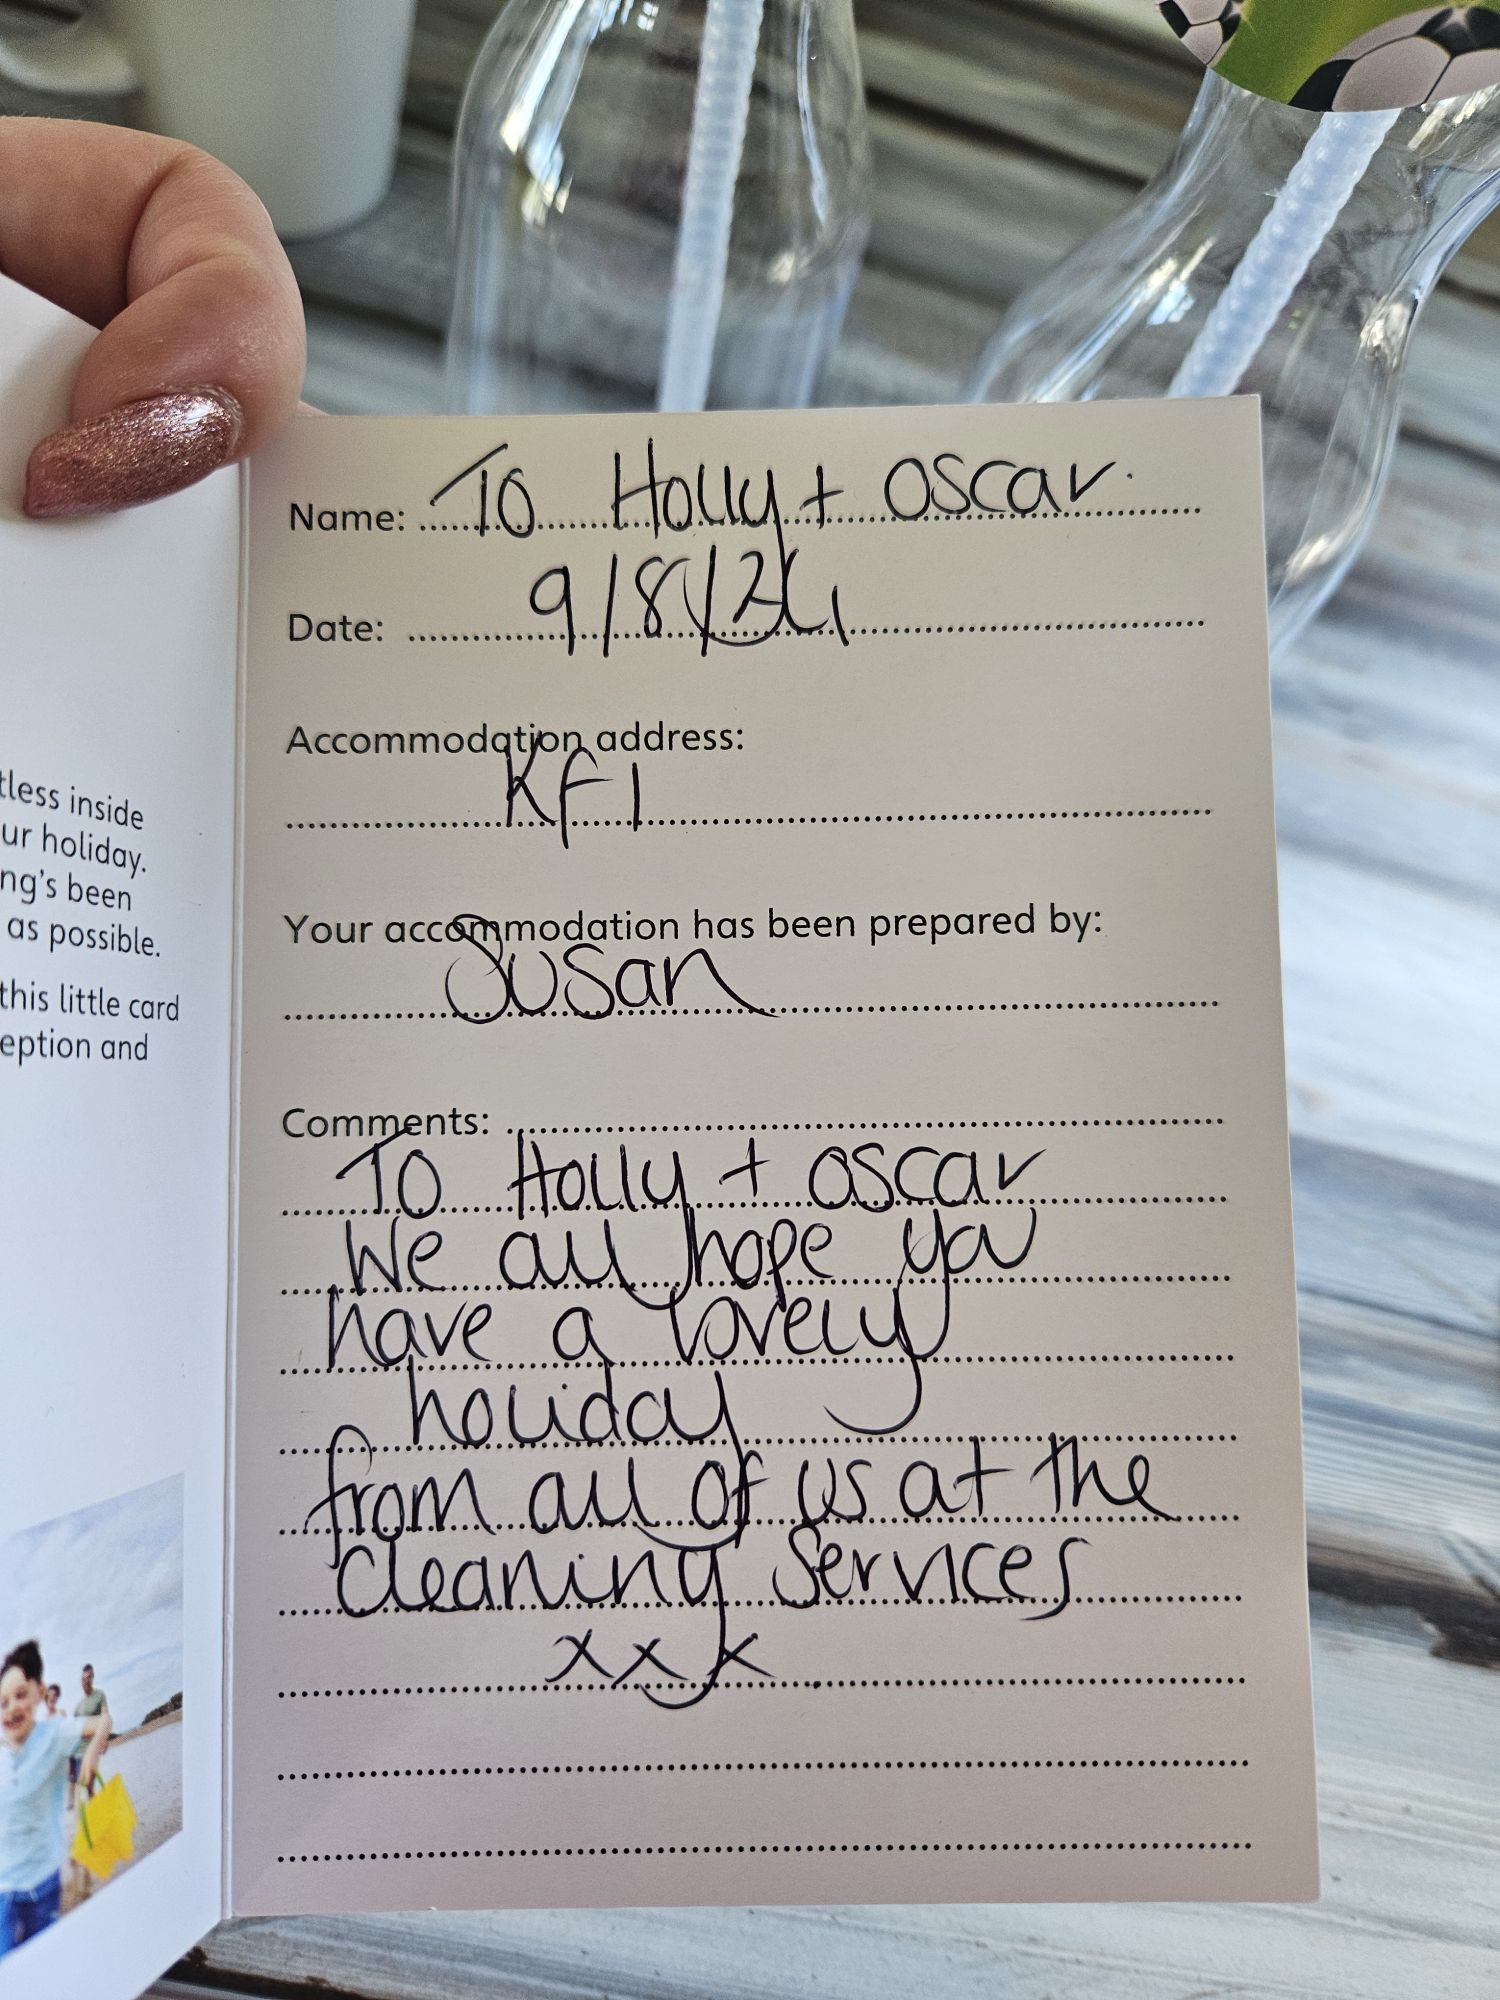 tless inside
ur holiday.
ng's been
as possible.
this little card
eption and
Name: To Holly + Oscar.
Date: 9/8/24
Accommodation address:
KF1
Your accommodation has been prepared by:
Susan
Comments:
To Holly + Oscar
We all hope you
have a lovely
holiday
from all of us at the
cleaning services
xxx